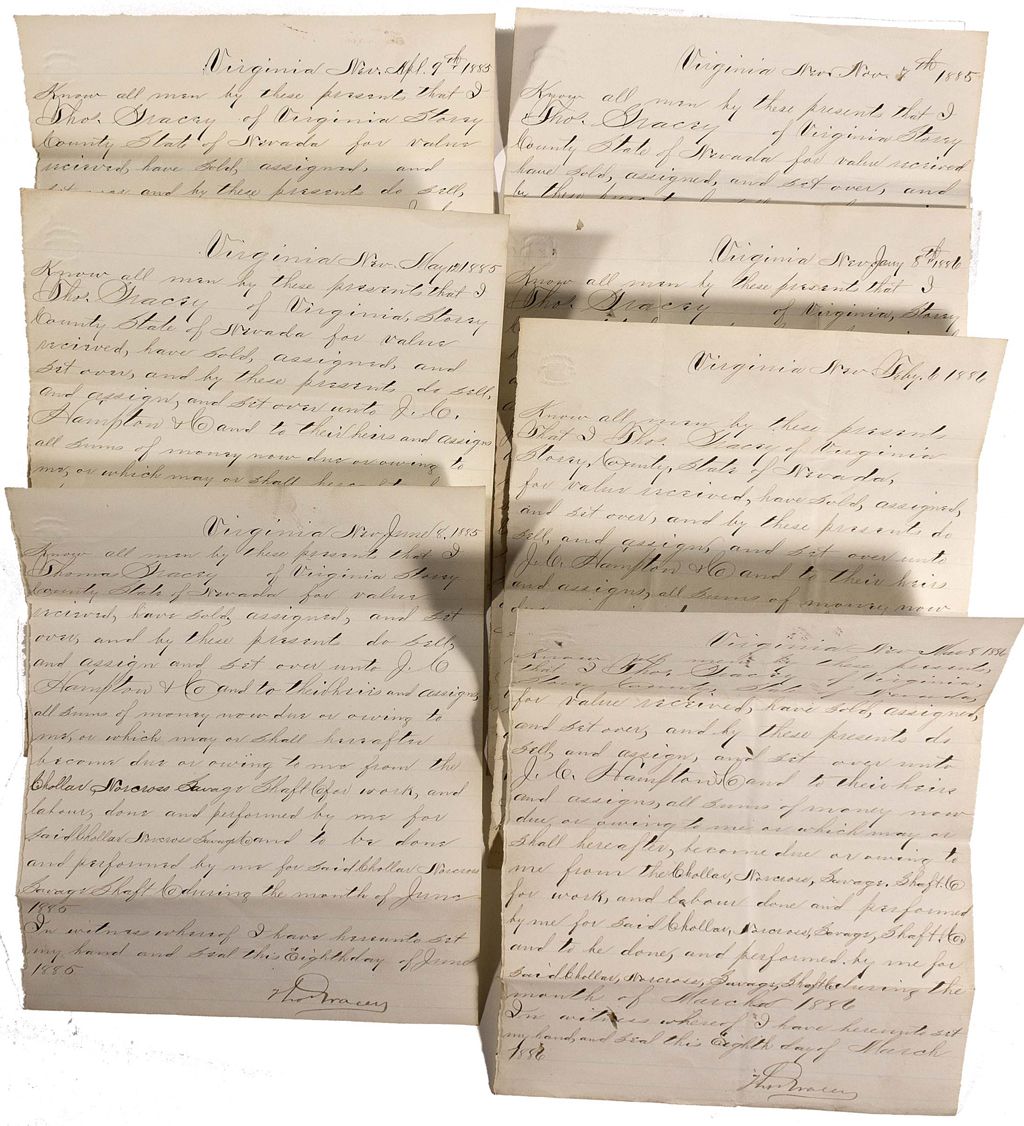 Virginia Nev. Apl. 9th 1885
Know all men by these presents that I
Thos. Gracey of Virginia Storey
County State of Nevada for value
recieved, have sold, assigned, and
set over and by these presents do sell,
Virginia Nev. May 1885
Know all men by these presents that I
Thos. Gracey of Virginia, Storey
County State of Nevada for value
recieved, have sold, assigned, and
set over, and by these presents do sell,
and assign, and set over unto J. C.
Hampton & Co and to their heirs and assigns
all sums of money now due or owing to
me, or which may or shall hereafter
Virginia Nev. June 8, 1885
Know all men by these present that I
Thomas Gracey of Virginia Storey
County State of Nevada for value
recieved, have sold, assigned, and set
over, and by these presents do sell,
and assign and set over unto J. C
Hampton & Co and to their heirs and assigns
all sums of money now due or owing to
me, or which may or shall hereafter
become due or owing to me from the
Chollar Norcross Savage Shaft Co for work, and
labour, done and performed by me for
said Chollar Norcross Savage Co and to be done
and performed by me for said Chollar Norcross
Savage Shaft Co during the month of June
1885
In witness whereof I have hereunto set
my hand and seal this Eighth day of June
1885
Thos Gracey
Virginia Nev. Nov. 7th 1885
Know all men by these presents that I
Thos. Gracey of Virginia Storey
County State of Nevada for value recieved
have sold, assigned, and set over, and
by these
Virginia Nev. Jany 8th 1886
Know all men by these presents that I
Thos. Gracey of Virginia, Storey
Virginia Nev Feby. 6 1886
Know all men by these presents
That I Thos. Gracey of Virginia
Storey, County, State of Nevada,
for value recieved, have sold, assigned,
and set over, and by these presents do
sell, and assign, and set over unto
J. C. Hampton & Co and to their heirs
and assigns, all sums of money now
Virginia Nev Mar 8 1886
Know all men by these presents,
that I Thos. Gracey of Virginia,
Storey County State of Nevada,
for value recieved, have sold, assigned,
and set over, and by these presents do
sell, and assign, and set over unto
J. C. Hampton & Co and to their heirs
and assigns, all sums of money now
due, or owing to me, or which may or
shall hereafter, become due or owing to
me from the Chollar, Norcross, Savage, Shaft. Co
for work, and labour done and performed
by me for said Chollar, Norcross, Savage, Shaft. Co,
and to be done, and performed by me for
said Chollar, Norcross, Savage, Shaft Co during the
month of March 1886
In witness whereof I have hereunto set
my hand, and seal this Eighth day of March
1886
Thos Gracey